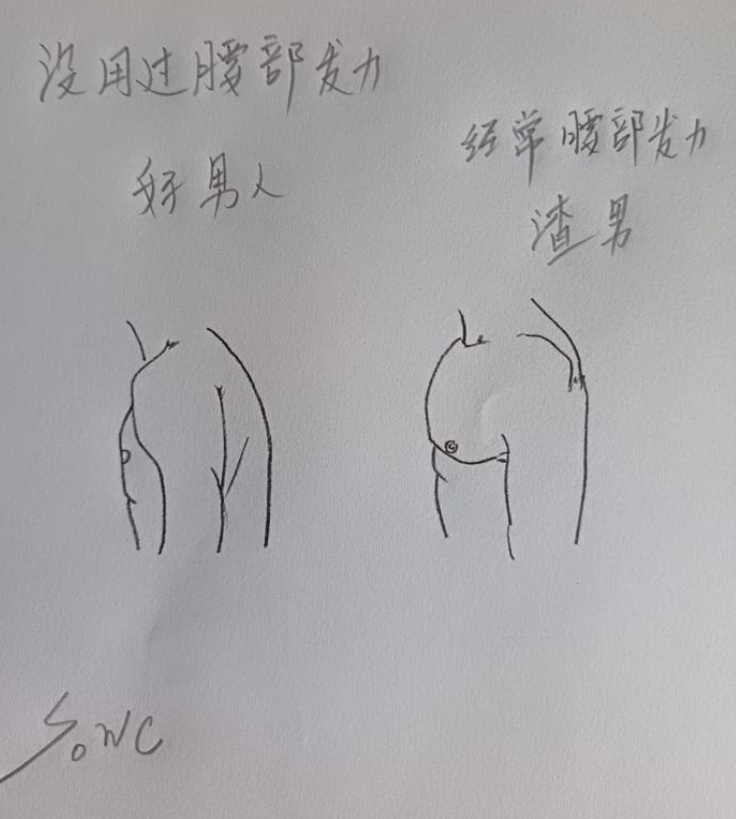 没用过腰部发力
好男人
经常腰部发力
渣男
SonC